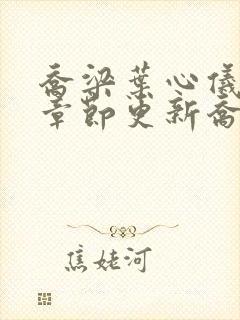 乔梁叶心仪
章节更新乔
焦姥河